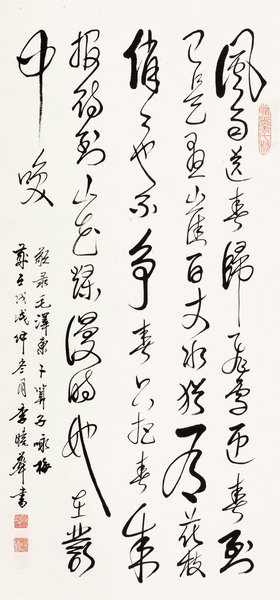 風雨送春歸飛雪迎春到
已是懸崖百丈冰猶有花枝
俏〻也不争春只把春来
報待到山花爛漫時她在叢
中笑
敬录毛澤東卜算子咏梅
戊戌仲冬月李書